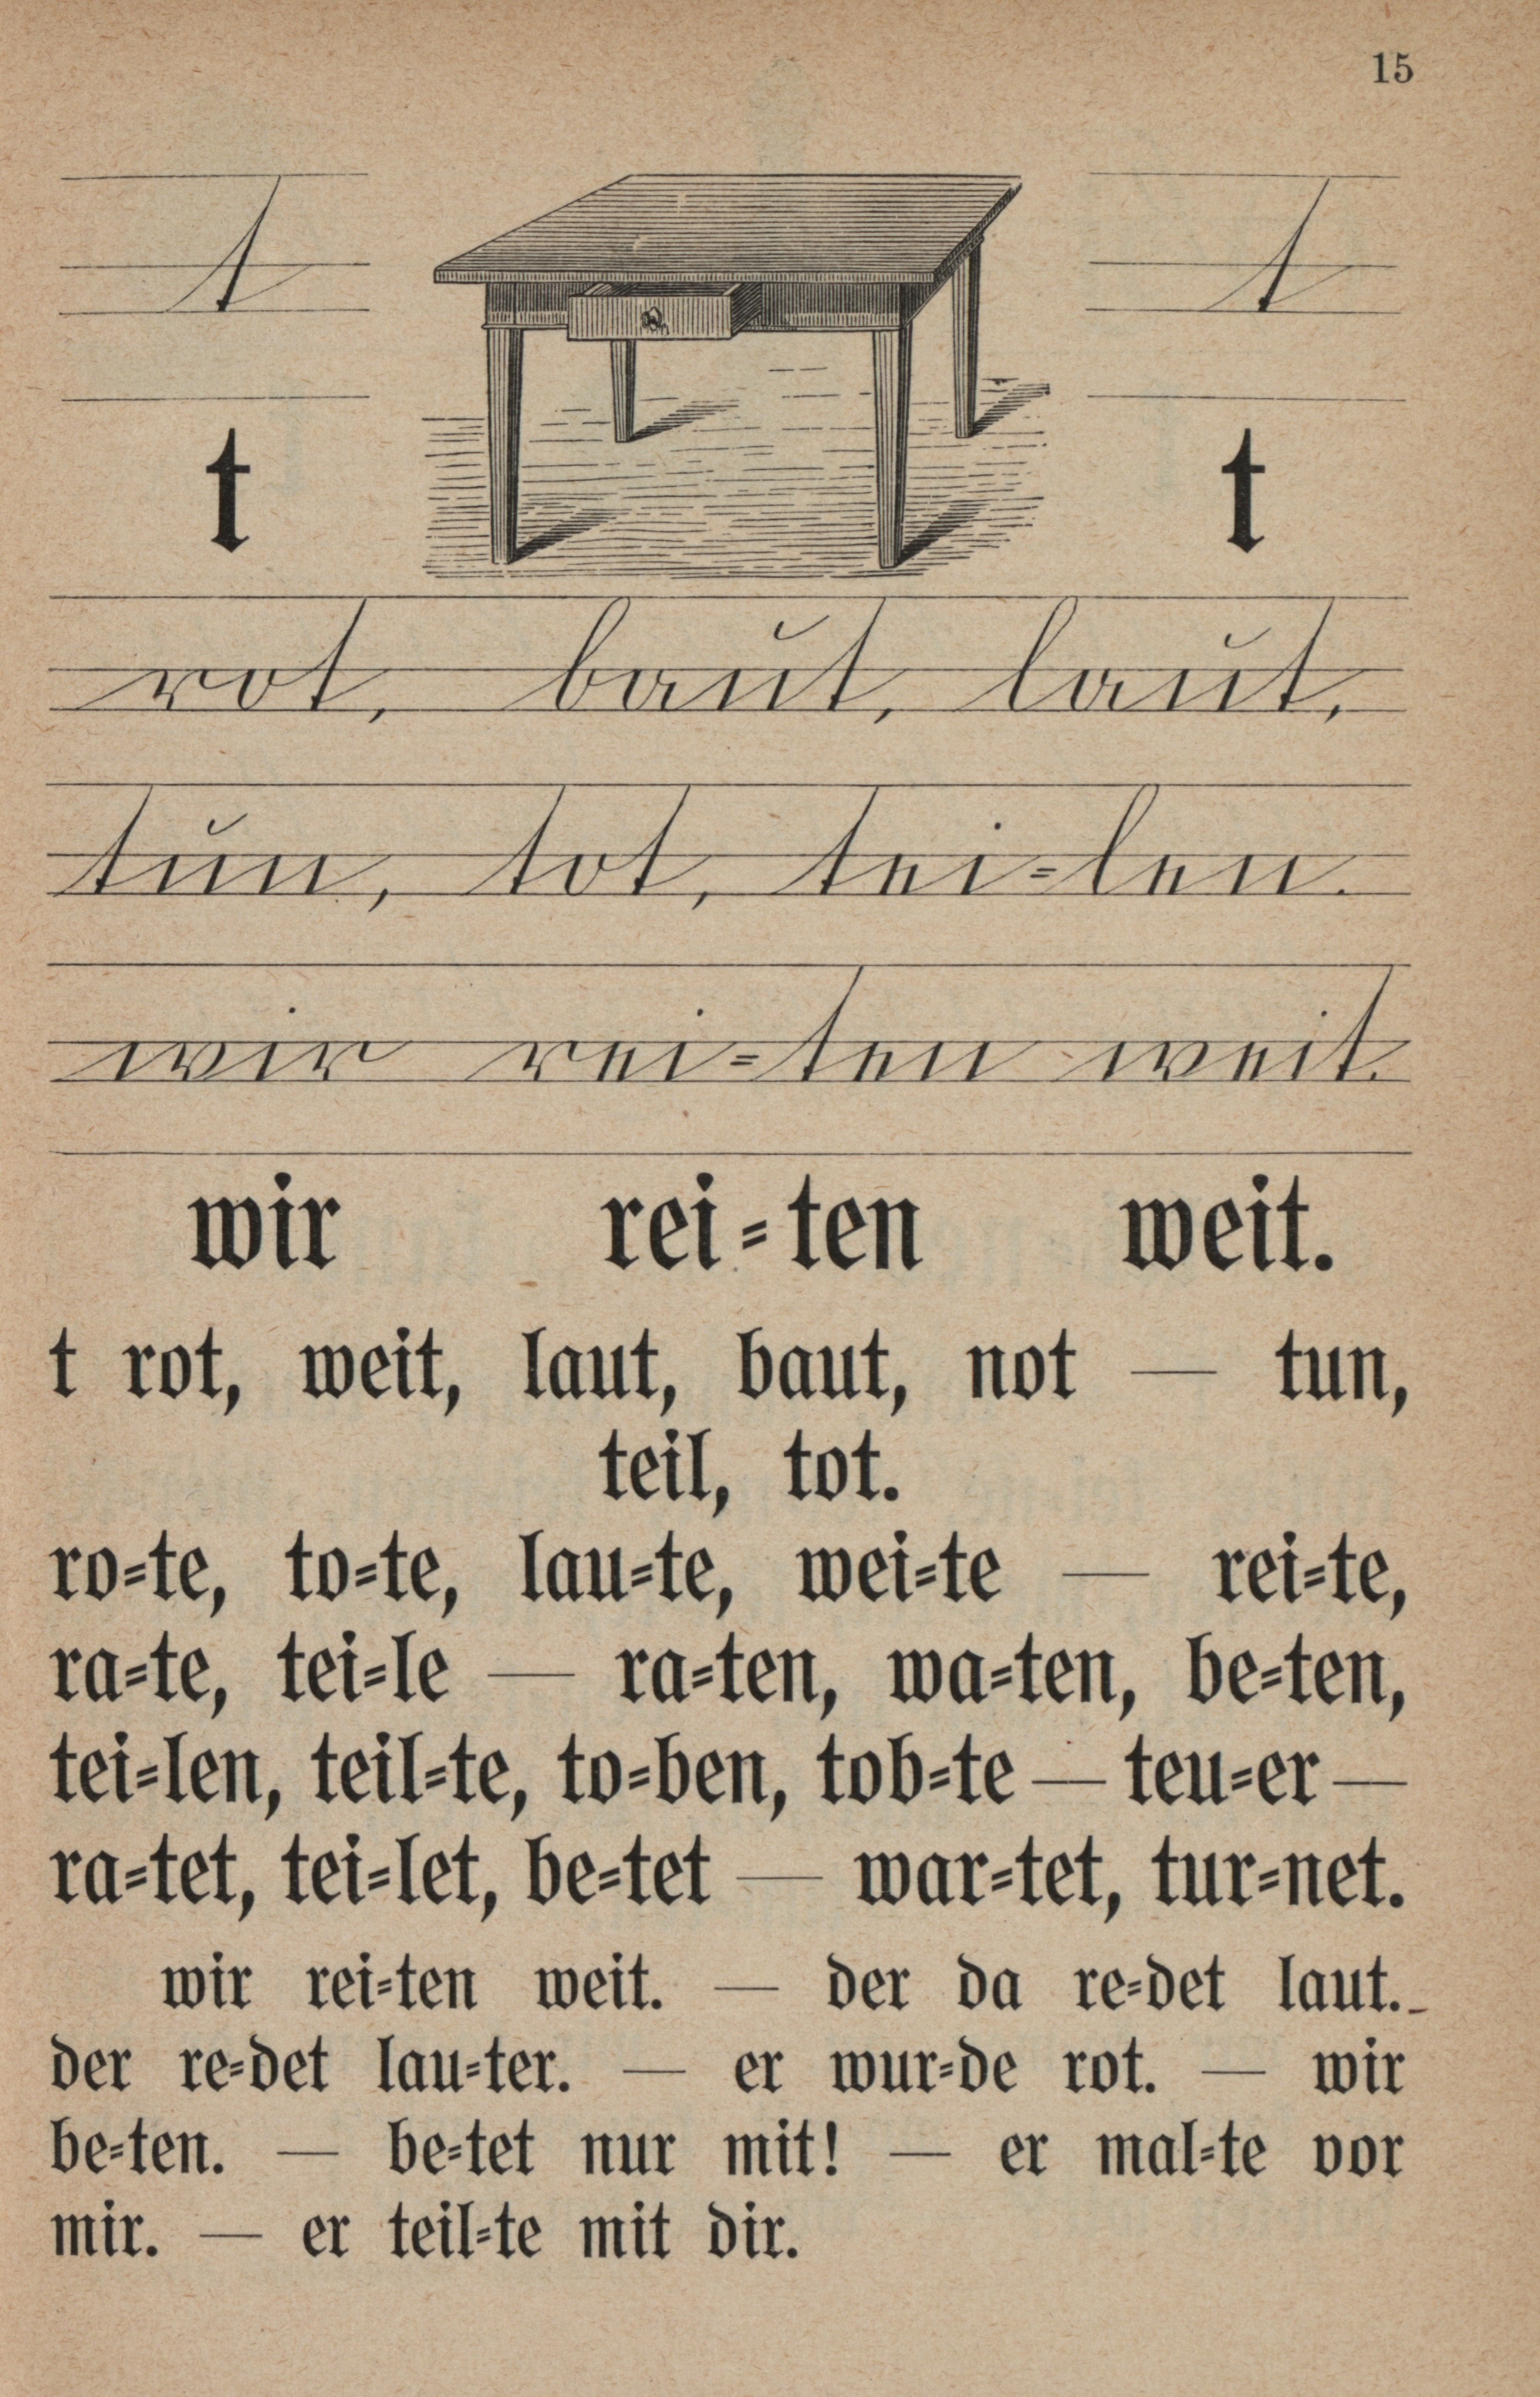 15
t t
t t
rot, baut, laut,
tun, tot, tei=len.
wir rei=ten weit.
wir rei=ten weit.
t rot, weit, laut, baut, not — tun,
teil, tot.
ro=te, to=te, lau=te, wei=te — rei=te,
ra=te, tei=le — ra=ten, wa=ten, be=ten,
tei=len, teil=te, to=ben, tob=te — teu=er —
ra=tet, tei=let, be=tet — war=tet, tur=net.
wir rei=ten weit. — der da re=det laut. –
der re=det lau=ter. — er wur=de rot. — wir
be=ten. — be=tet nur mit! — er mal=te vor
mir. — er teil=te mit dir.